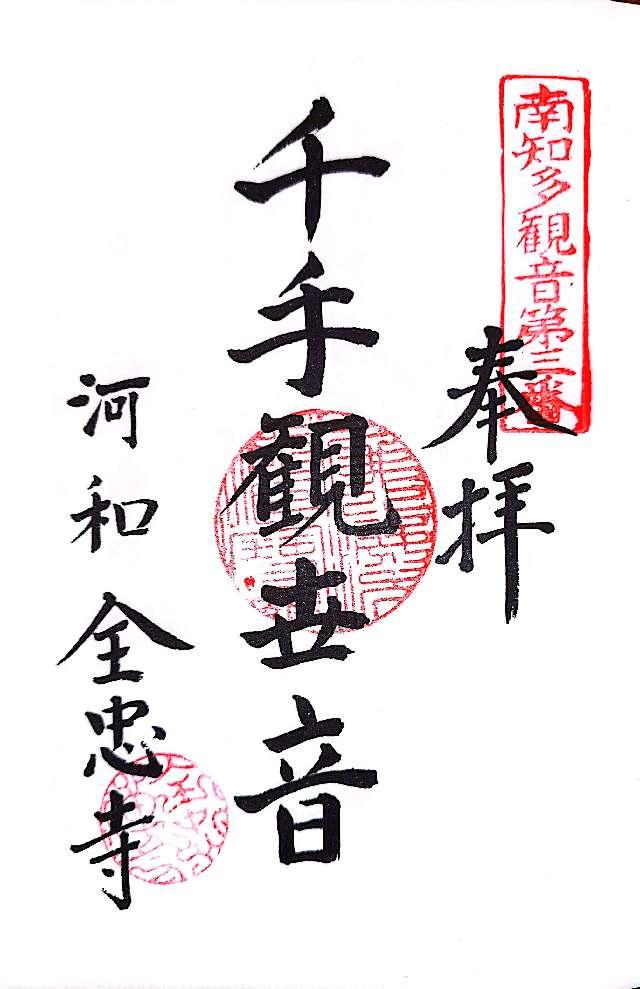 南知多観音第三番
奉拝
千手観世音
河和 全忠寺